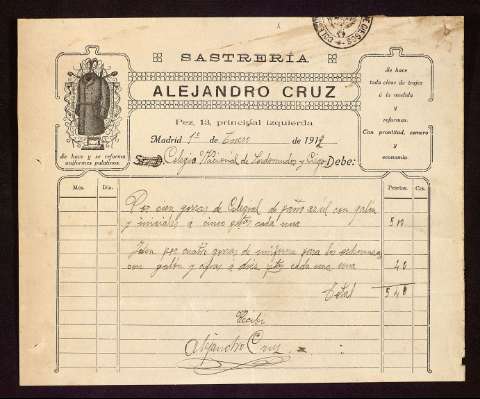 SASTRERÍA
ALEJANDRO CRUZ
Pez, 13, principal izquierda
Madrid 1º de Enero de 1912
Colegio Nacional de Sordomudos y Ciegos Debe:
Se hace y se reforma
uniformes palatinos.
Se hace
toda clase de trajes
á la medida
y
reformas.
Con prontitud, esmero
y
economía.
Mes. Día. Pesetas. Cén.
Por cien gorras de Colegial de paño azul con galón
y iniciales a cinco ptas cada una 500
Idem por cuatro gorras de uniforme para los
con galón y cifras a diez ptas cada una 40
Total 540
Recibí
Alejandro Cruz